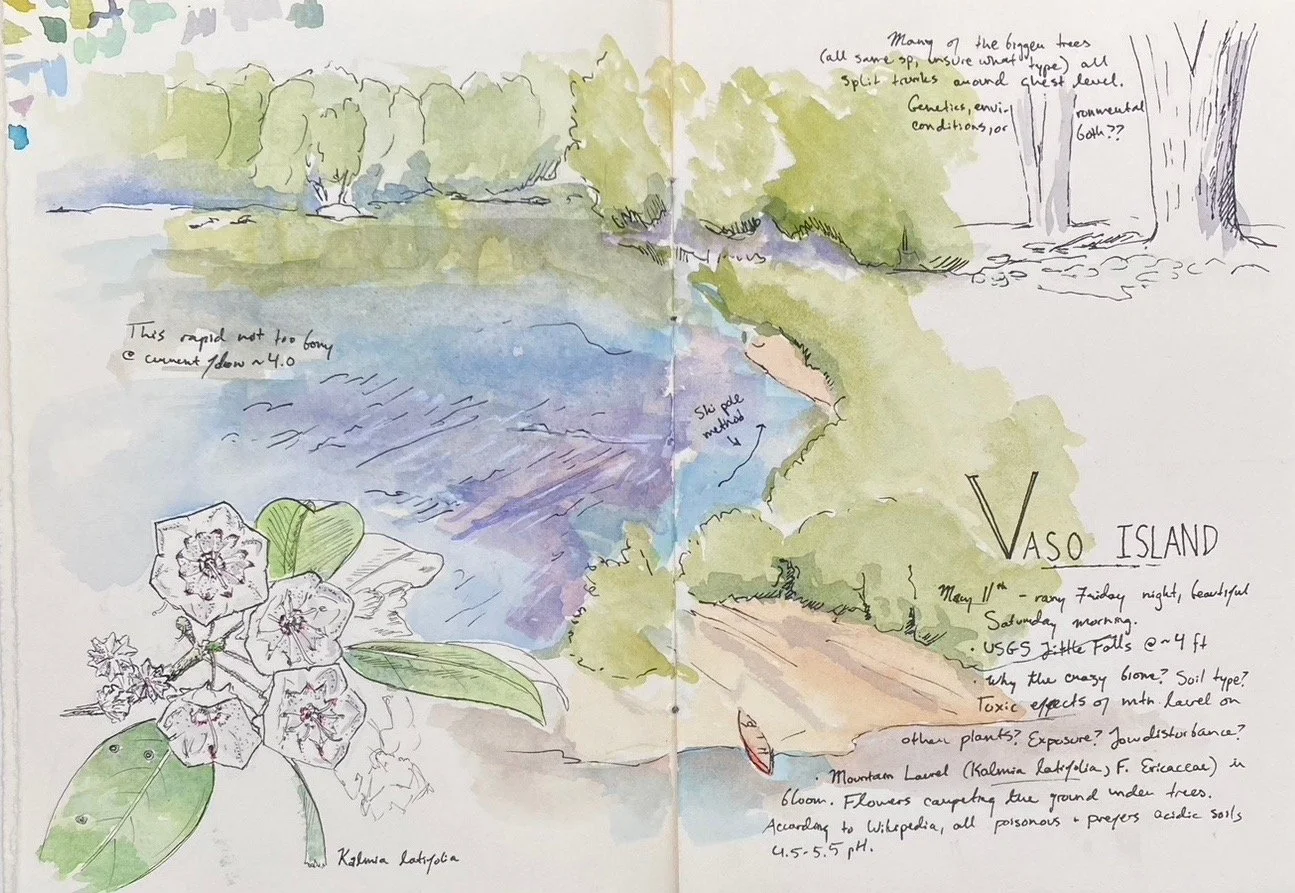 Many of the bigger trees
(all same sp, unsure what type) all
split trunks around chest level.
Genetics, envi-ronmental
conditions, or both??
This rapid not too bony
@ current flow ~ 4.0
Ski pole
method
VASO ISLAND
May 11th - rany Friday night, beautiful
Saturday morning.
· USGS Little Falls @ ~4 ft
· Why the crazy biome? Soil type?
Toxic effects of mtn. lavel on
other plants? Exposure? Low disturbance?
· Mountain Laurel (Kalmia latifolia, F. Ericaceae) in
bloom. Flowers carpeting the ground under trees.
According to Wikipedia, all poisonous + prefers acidic soils
4.5-5.5 pH.
Kalmia latifolia